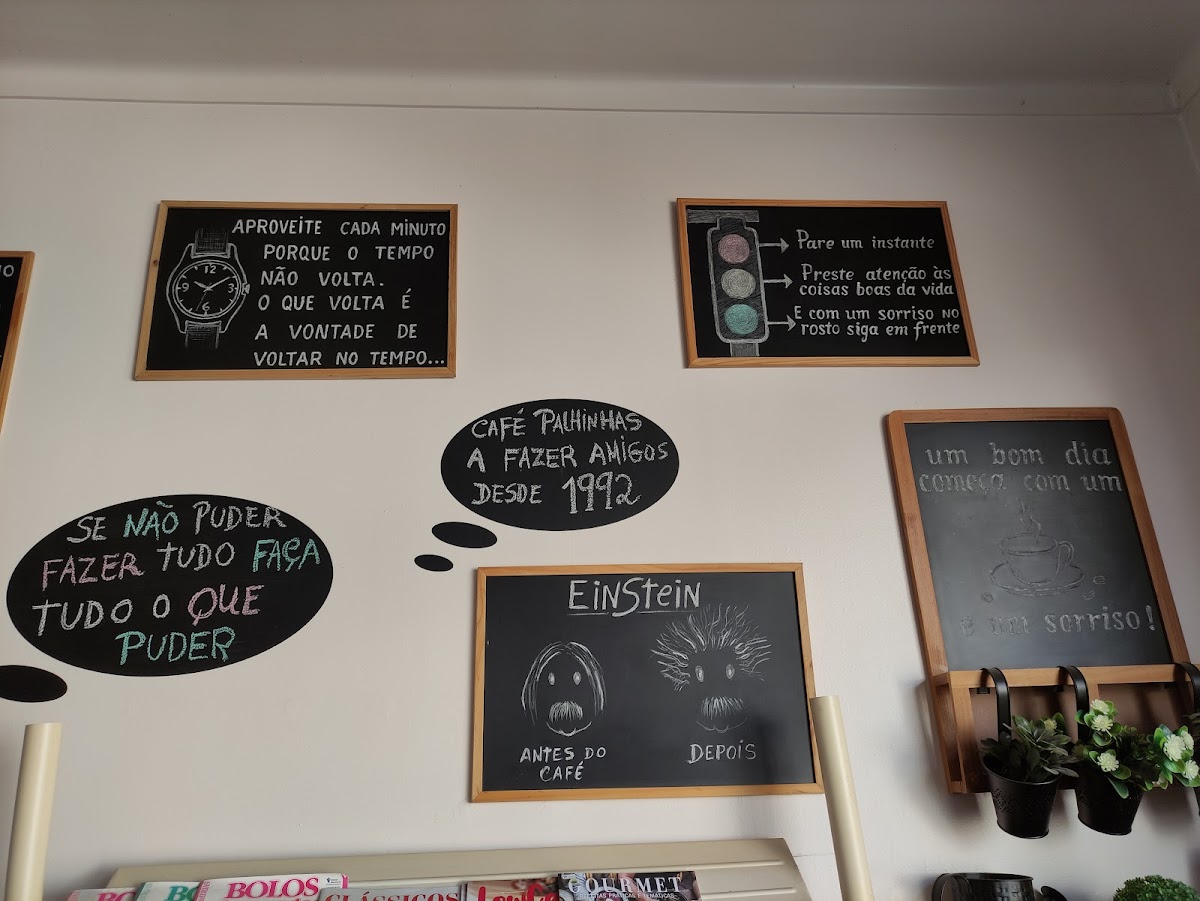 APROVEITE CADA MINUTO
PORQUE O TEMPO
NÃO VOLTA.
O QUE VOLTA É
A VONTADE DE
VOLTAR NO TEMPO...
12
3
6
9
Pare um instante
Preste atenção às
coisas boas da vida
E com um sorriso no
rosto siga em frente
CAFÉ PALHINHAS
A FAZER AMIGOS
DESDE 1992
um bom dia
começa com um
e um sorriso!
SE NÃO PUDER
FAZER TUDO FAÇA
TUDO O QUE
PUDER
EINSTEIN
ANTES DO
CAFÉ
DEPOIS
BOLOS
CLÁSSICOS
GOURMET